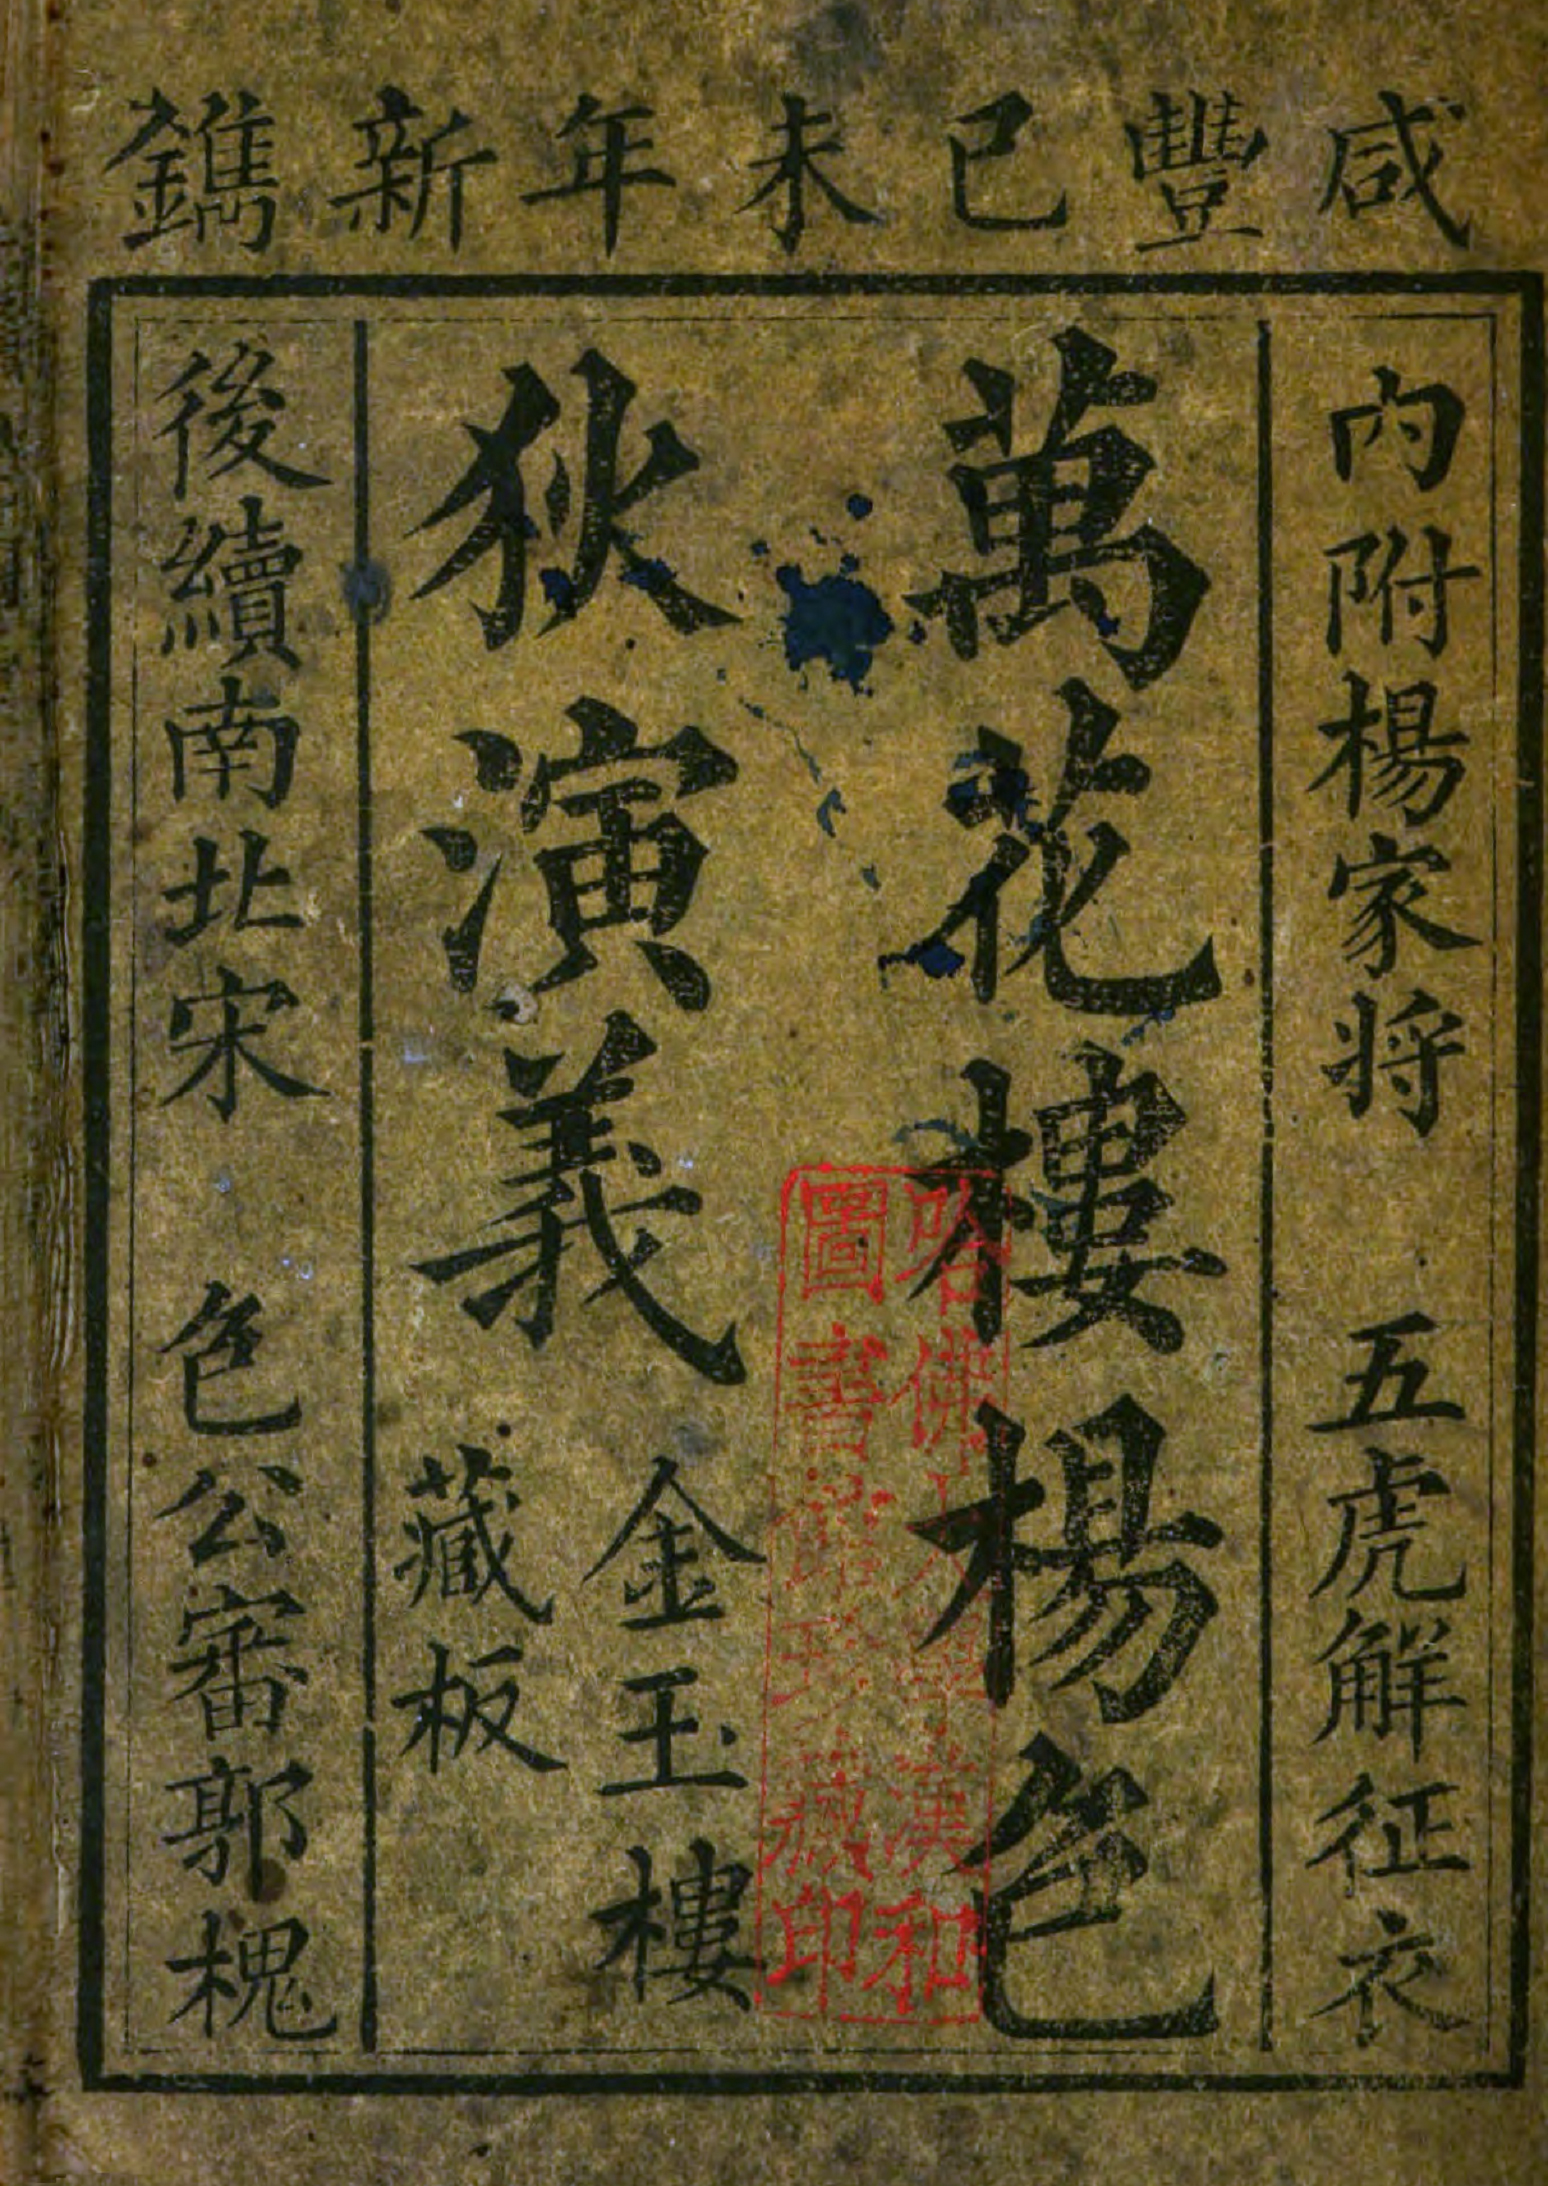 咸豐己未年新鐫
內附楊家將 五虎解征衣
萬花樓楊包
狄演義
金玉樓
藏板
後續南北宋 包公審郭槐
哈佛大學漢和
圖書館珍藏印